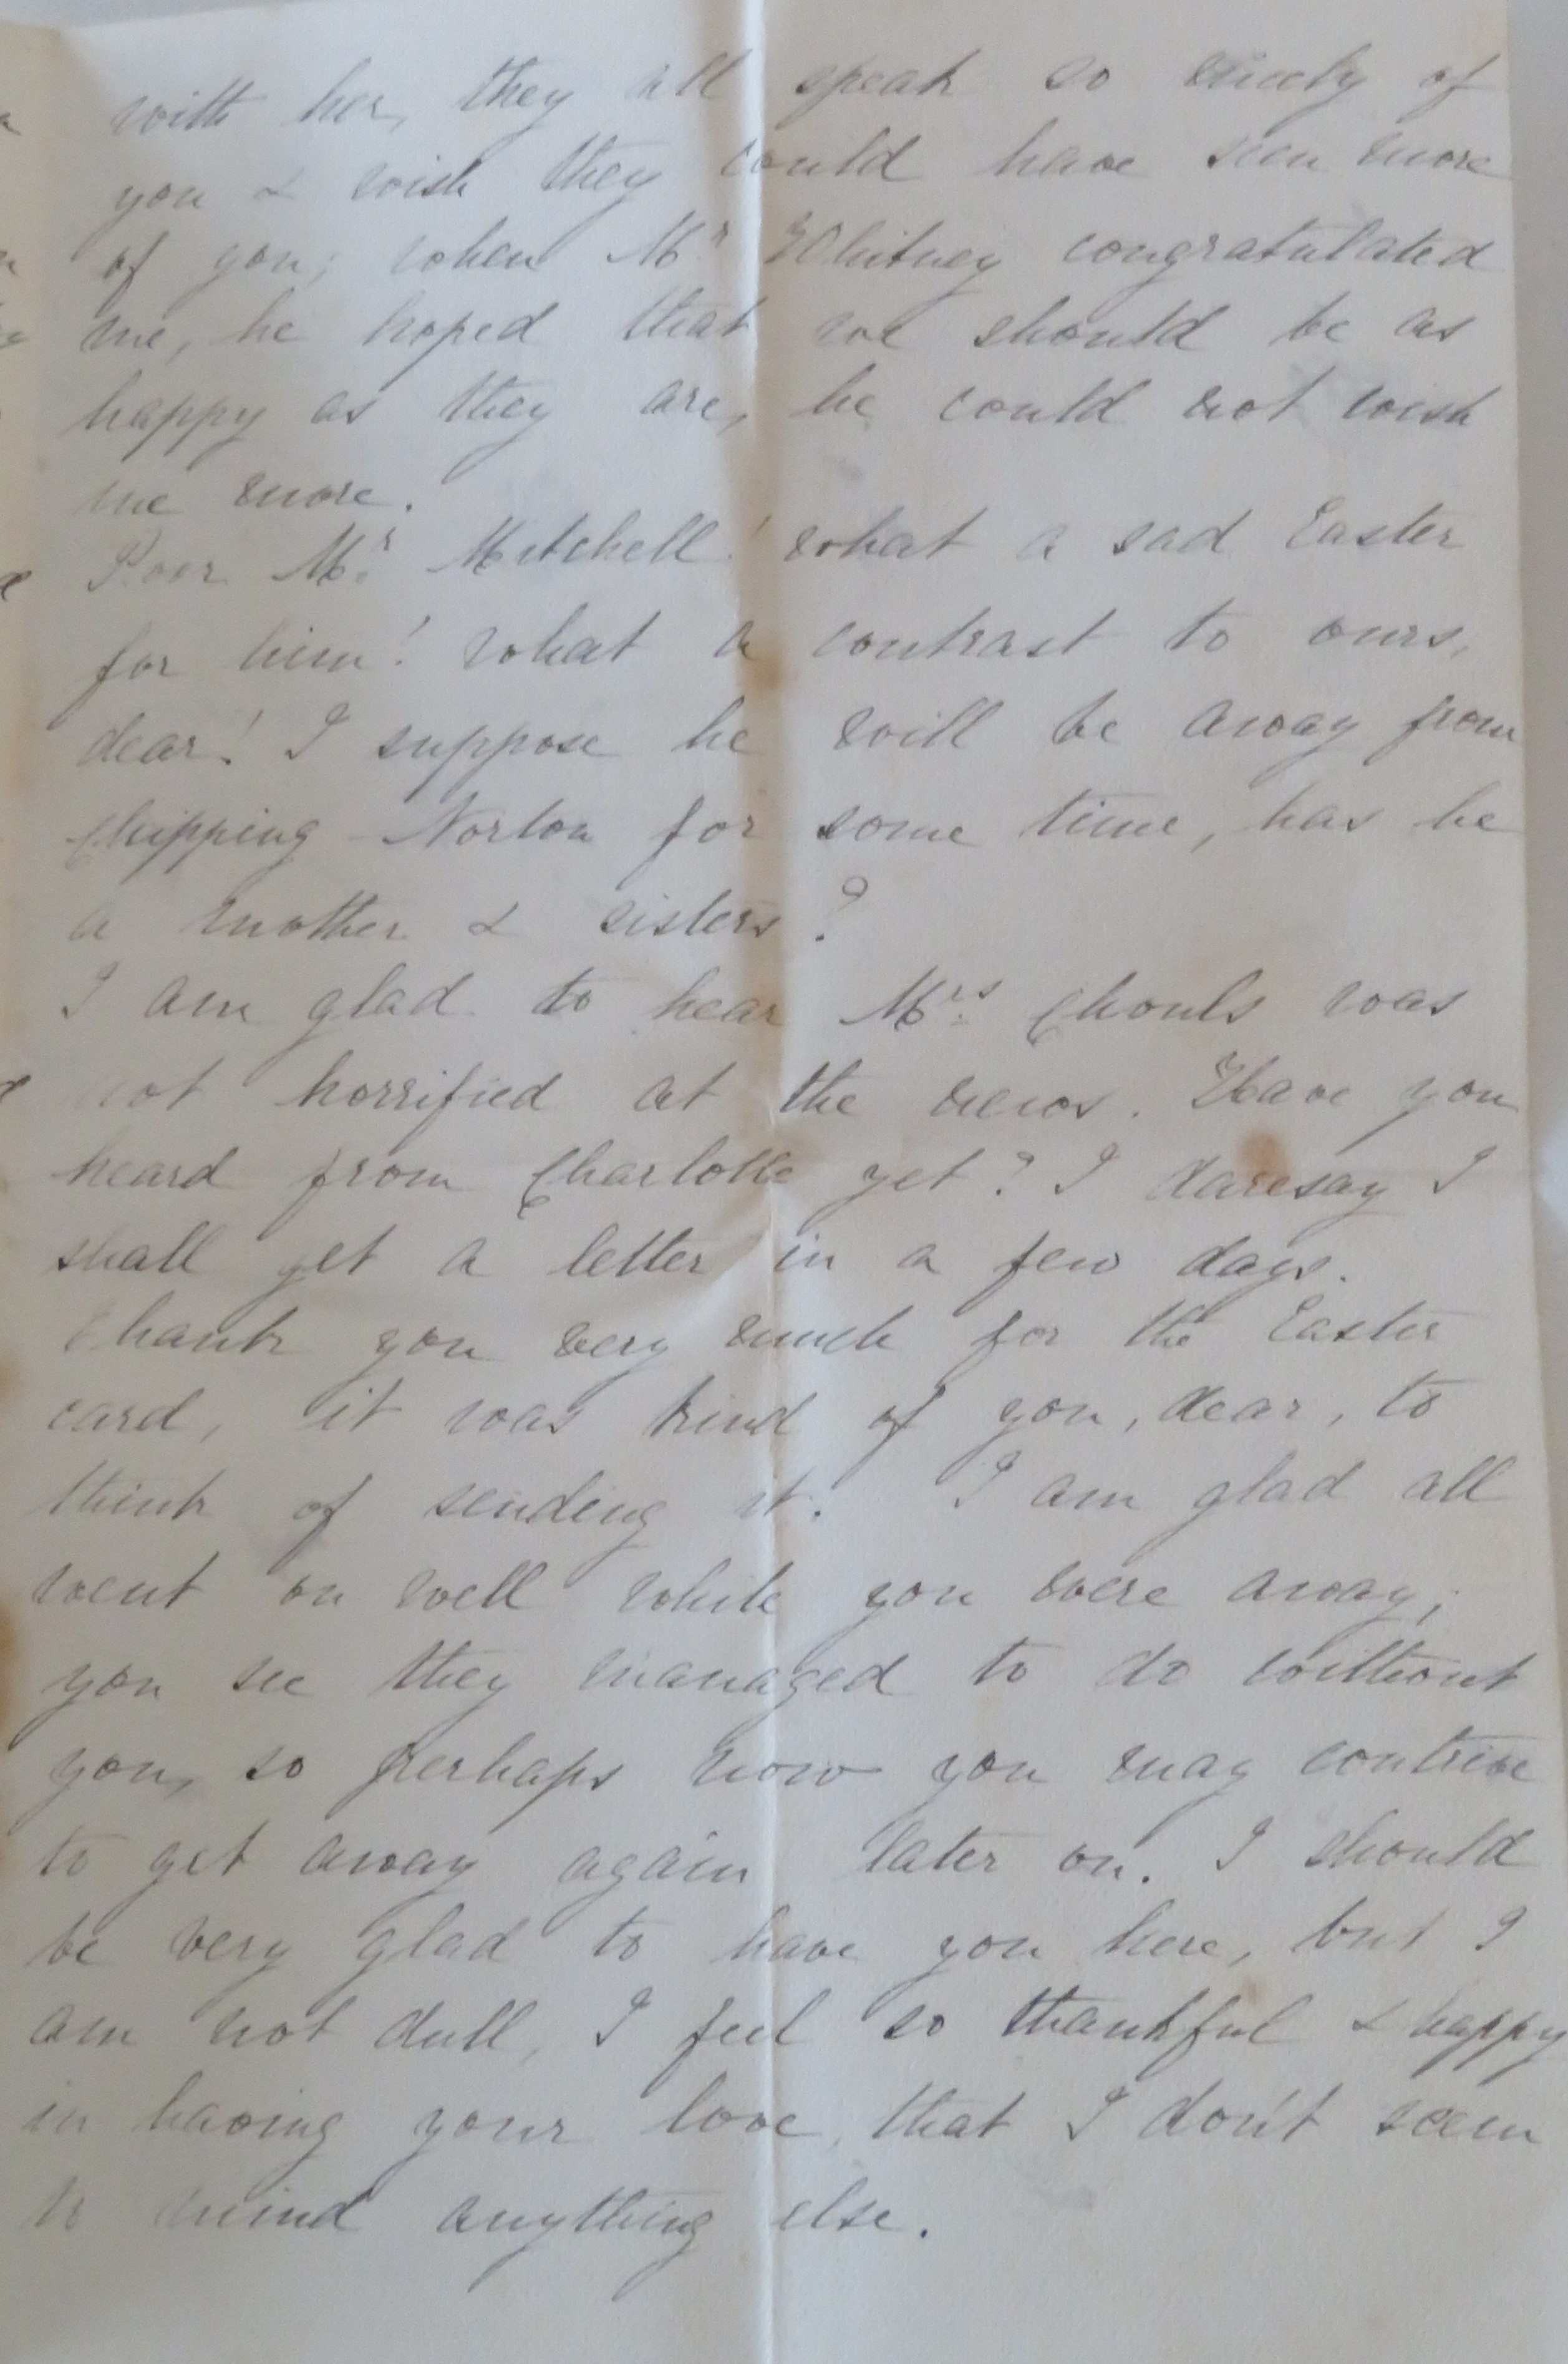 with her, they all speak so nicely of
you & wish they could have seen more
of you; when Mr Whitney congratulated
me, he hoped that we should be as
happy as they are, he could not wish
me more.
Poor Mr Mitchell! what a sad Easter
for him! what a contrast to ours,
dear! I suppose he will be away from
Chipping Norton for some time, has he
a mother & sisters?
I am glad to hear Mrs Choules was
not horrified at the news. Have you
heard from Charlotte yet? I daresay I
shall get a letter in a few days.
Thank you very much for the Easter
card, it was kind of you, dear, to
think of sending it. I am glad all
went on well while you were away;
you see they managed to do without
you, so perhaps now you may contrive
to get away again later on. I should
be very glad to have you here, but I
am not dull, I feel so thankful & happy
in having your love, that I don't seem
to mind anything else.